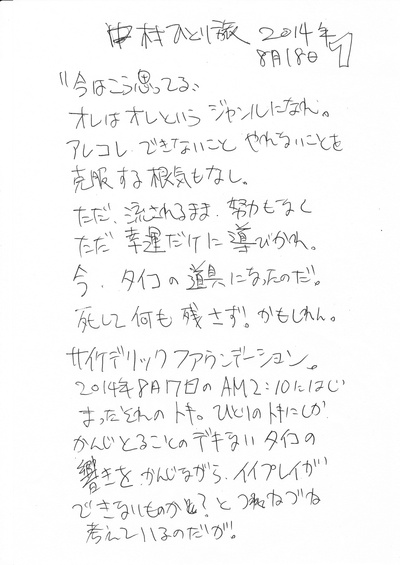 中村ひとり旅 2014年
8月18日 1
"今はこう思ってる、
オレはオレという ジャンルになれ。
アレコレ できないこと やれないことを
克服する根気もなし。
ただ、流されるまま、努力もなく
ただ 幸運だけに 導びかれ。
今、タイコの道具になったのだ。
死して何も残さず!かもしれん。
サイケデリックファウンデーション。
2014年8月17日のAM2:10にはじ
まったそれのトキ。ひとりのトキにしか
かんじとることのデキない タイコの
響きを かんじながら、イイプレイが
できないものかと?と つねづね
考えているのだが。